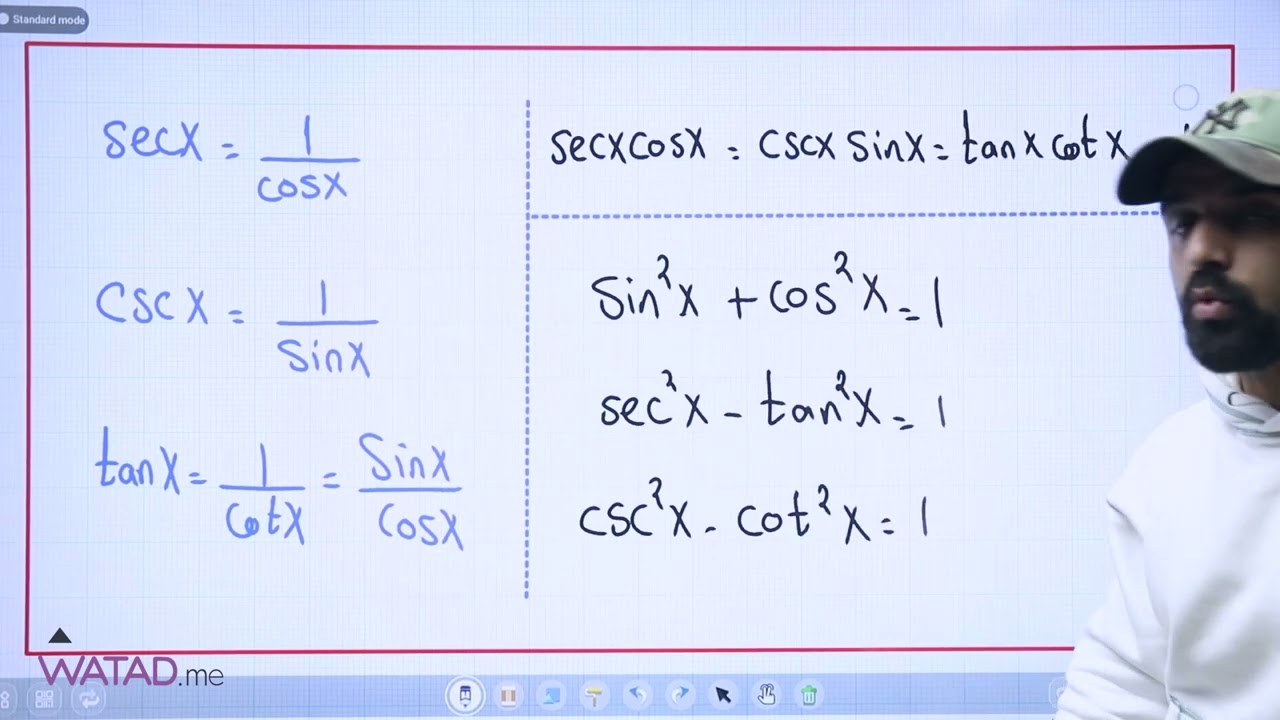 Standard mode
secx = 1/cosx
cscx = 1/sinx
tanx = 1/cotx = sinx/cosx
secxcosx = cscx sinx = tanx cotx
sin²x + cos²x = 1
sec²x - tan²x = 1
csc²x - cot²x = 1
WATAD.me